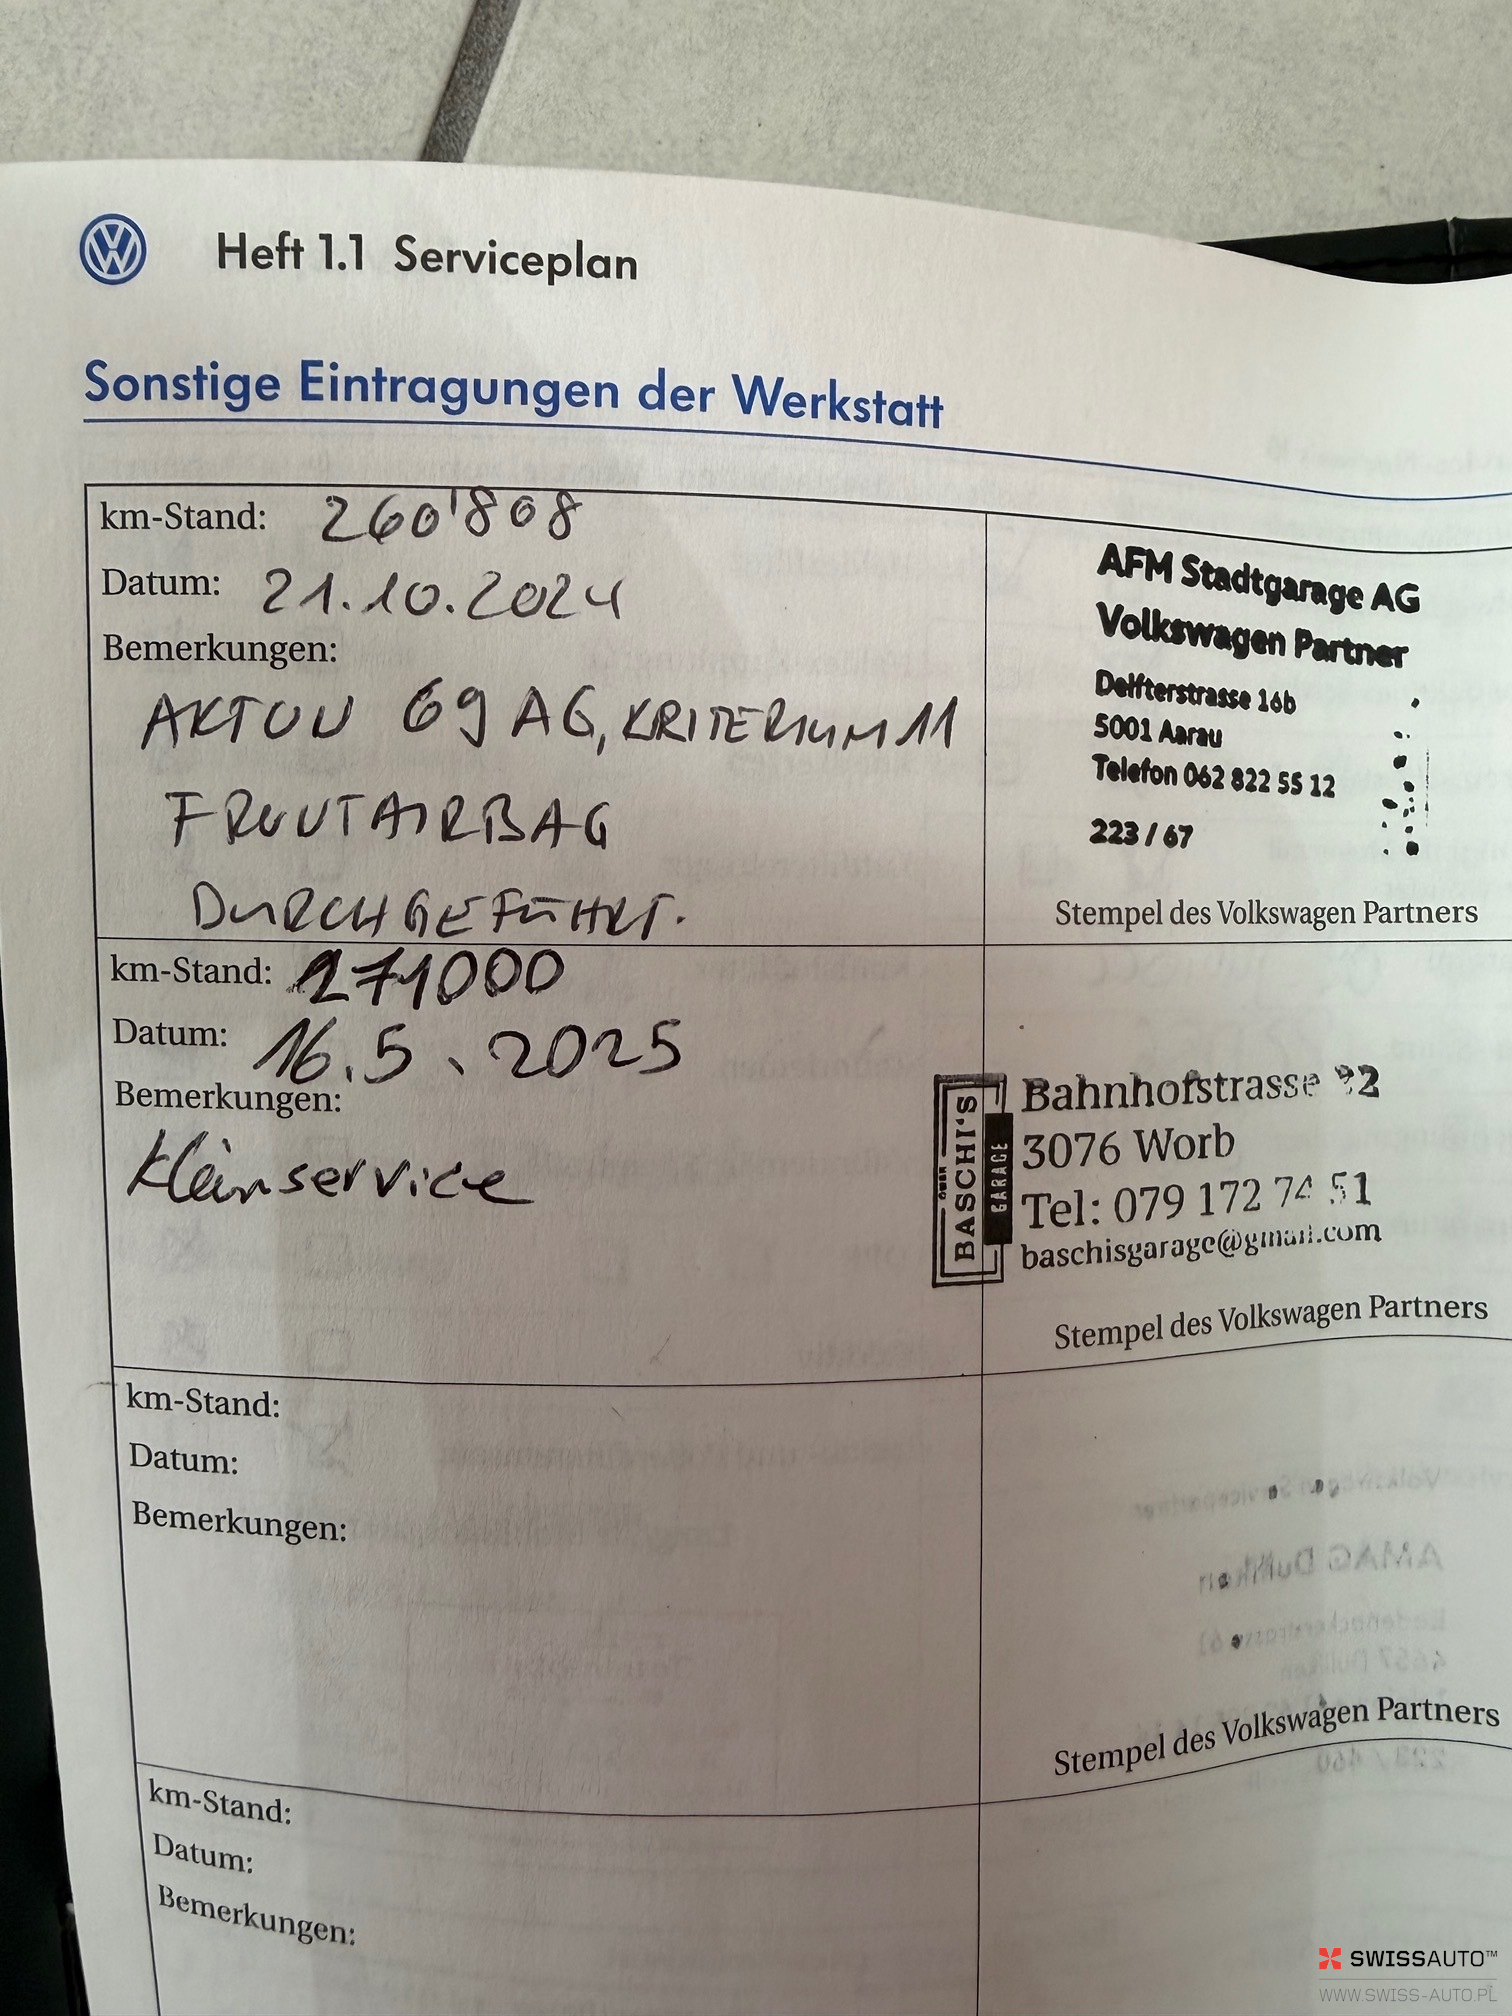 Heft 1.1 Serviceplan
Sonstige Eintragungen der Werkstatt
km-Stand: 260'808
Datum: 21.10.2024
Bemerkungen:
AKTION 69 AG, KRITERIUM 11
FRONTAIRBAG
DURCHGEFÜHRT.
AFM Stadtgarage AG
Volkswagen Partner
Delfterstrasse 16b
5001 Aarau
Telefon 062 822 55 12
223 / 67
Stempel des Volkswagen Partners
km-Stand: 271000
Datum: 16.5.2025
Bemerkungen:
Kleinservice
BASCHI'S
GARAGE
Bahnhofstrasse
3076 Worb
Tel: 079 172 74 51
baschisgarage@gmail.com
Stempel des Volkswagen Partners
km-Stand:
Datum:
Bemerkungen:
Stempel des Volkswagen Partners
km-Stand:
Datum:
Bemerkungen:
SWISSAUTO™
WWW.SWISS-AUTO.PL